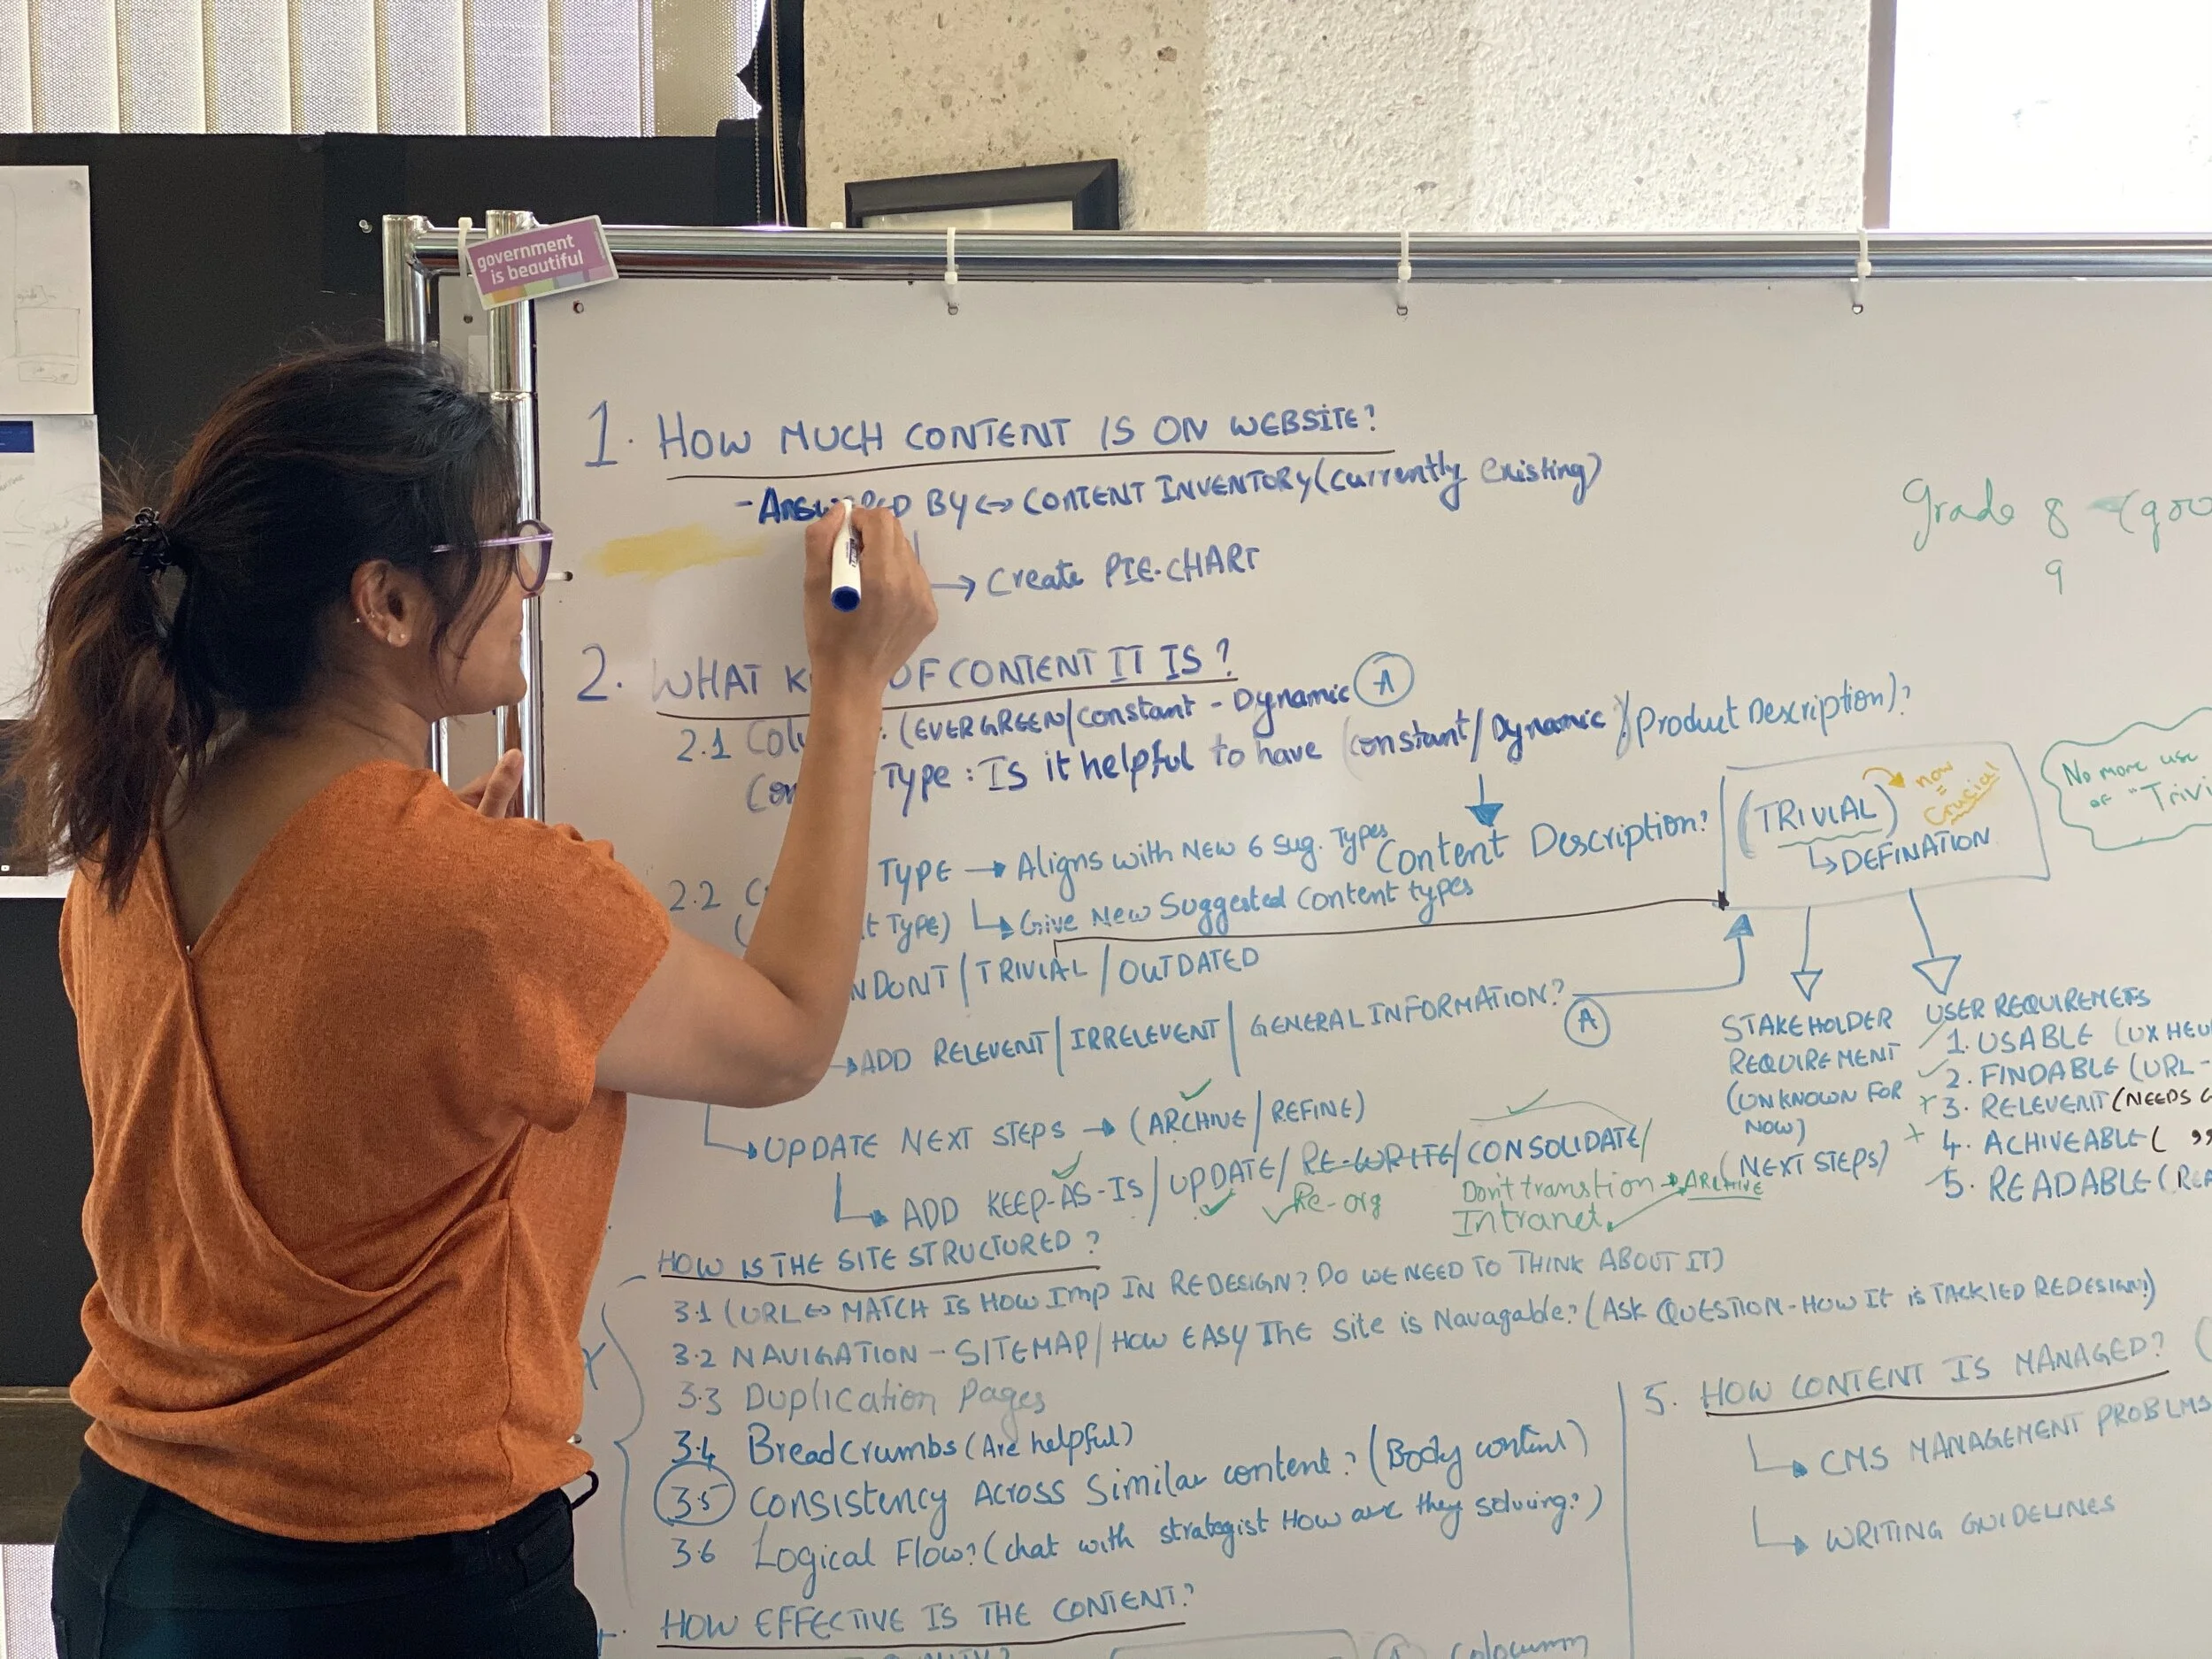 government
is beautiful
1. HOW MUCH CONTENT IS ON WEBSITE?
- BY <-> CONTENT INVENTORY (currently Existing)
→ Create PIE-CHART
Grade 8
9
2. WHAT OF CONTENT IT IS?
2.1 : (EVERGREEN/Constant - Dynamic A
Type: Is it helpful to have (constant/Dynamic)/Product Description)?
Content Description?
(TRIVIAL) now = Crucial
↳ DEFINATION
No more use
of "Trivi
2.2 TYPE → Aligns with New 6 Sug. Types
Type) ↳ Give New Suggested Content types
DONT / TRIVIAL / OUTDATED
→ ADD RELEVENT / IRRELEVENT / GENERAL INFORMATION? A
↳ UPDATE NEXT STEPS → (ARCHIVE / REFINE)
↳ ADD KEEP-AS-IS / UPDATE / RE-WRITE / CONSOLIDATE /
Re-org
Don't transtion → ARCHIVE
Intranet
STAKEHOLDER
REQUIREMENT
(UNKNOWN FOR
NOW)
(NEXT STEPS)
USER REQUIREMETS
1. USABLE (UX HEU
2. FINDABLE (URL -
3. RELEVENT (NEEDS
4. ACHIVEABLE ( "
5. READABLE (
HOW IS THE SITE STRUCTURED?
3.1 (URL <-> MATCH IS HOW Imp IN REDESIGN? DO WE NEED TO THINK ABOUT IT)
3.2 NAVIGATION - SITEMAP / HOW EASY THE Site is Navagable? (ASK QUESTION - HOW It is TACKLED REDESIGN?)
3.3 Duplication Pages
3.4 Breadcrumbs (Are helpful)
3.5 Consistency Across Similar content? (Body content)
3.6 Logical Flow? (chat with strategist How are they solving?)
HOW EFFECTIVE IS THE CONTENT?
5. HOW CONTENT IS MANAGED?
↳ CMS MANAGEMENT PROBLMS
↳ WRITING GUIDELINES